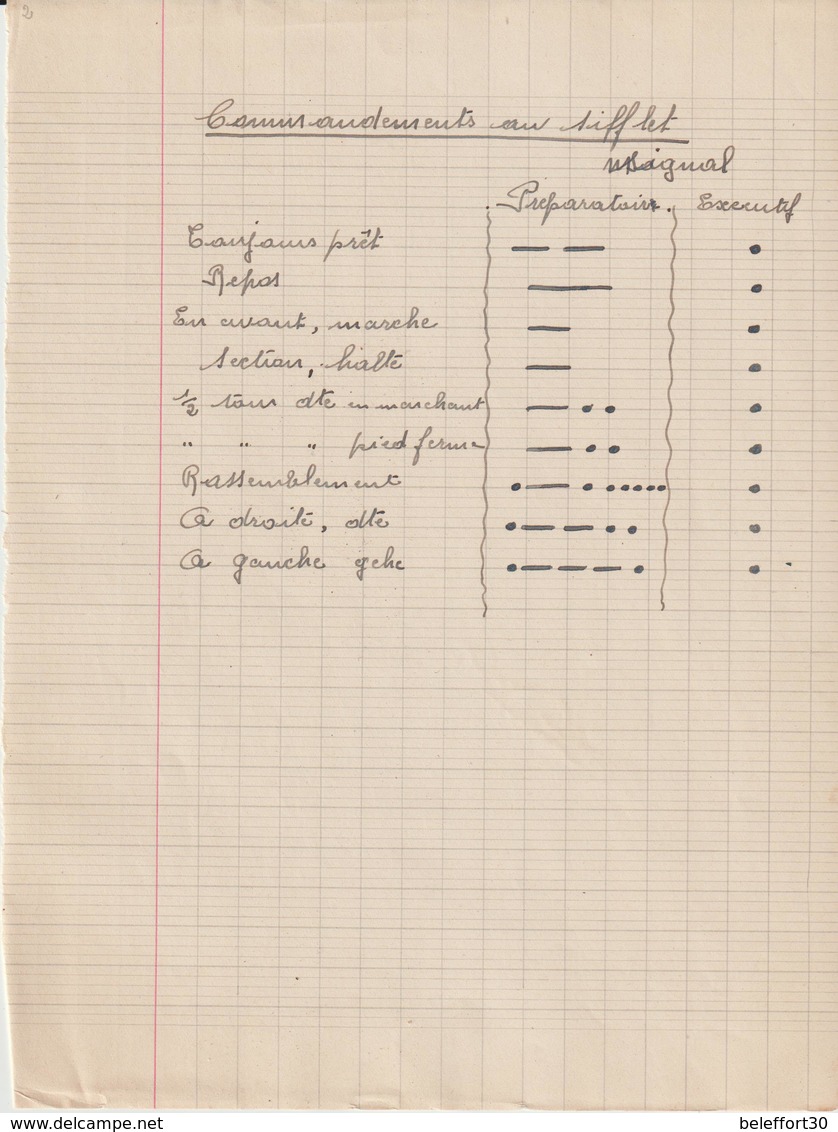 2
Commandements au sifflet
signal
Préparatoire. Executif
Toujours prêt — — •
Repos — •
En avant, marche — •
Section, halte — •
1/2 tour dte en marchant — • • •
" " " pied ferme — • • •
Rassemblement • — • • • • • • •
A droite, dte • — — • • •
A gauche gche • — — — • •
www.delcampe.net beleffort30